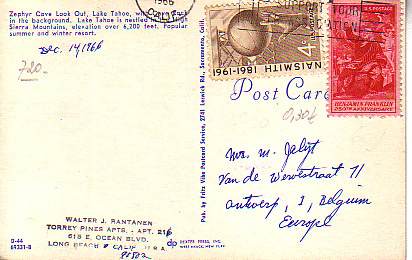 Zephyr Cove Look Out, Lake Tahoe,
in the background. Lake Tahoe is nestled in the High
Sierra Mountains, elevation over 6,200 feet. Popular
summer and winter resort.
Dec. 14, 1966
720-
1966
CALIF
SUPPORT YOUR
NAISMITH
1861-1961
4¢
U.S. POSTAGE
BENJAMIN FRANKLIN
250TH ANNIVERSARY
Post Card
0,30€
Pub. by Fritz Vibe Postcard Service, 2741 Leorich Rd., Sacramento, Calif.
Mrs. M. Jelyt
Van de Wervestraat 11
Antwerp, 1, Belgium
Europe
WALTER J. RANTANEN
TORREY PINES APTS. - APT. 216
615 E. OCEAN BLVD.
LONG BEACH 2 CALIF. U.S.A.
90802
D-44
69331-B
dp DEXTER PRESS, INC.
WEST NYACK, NEW YORK